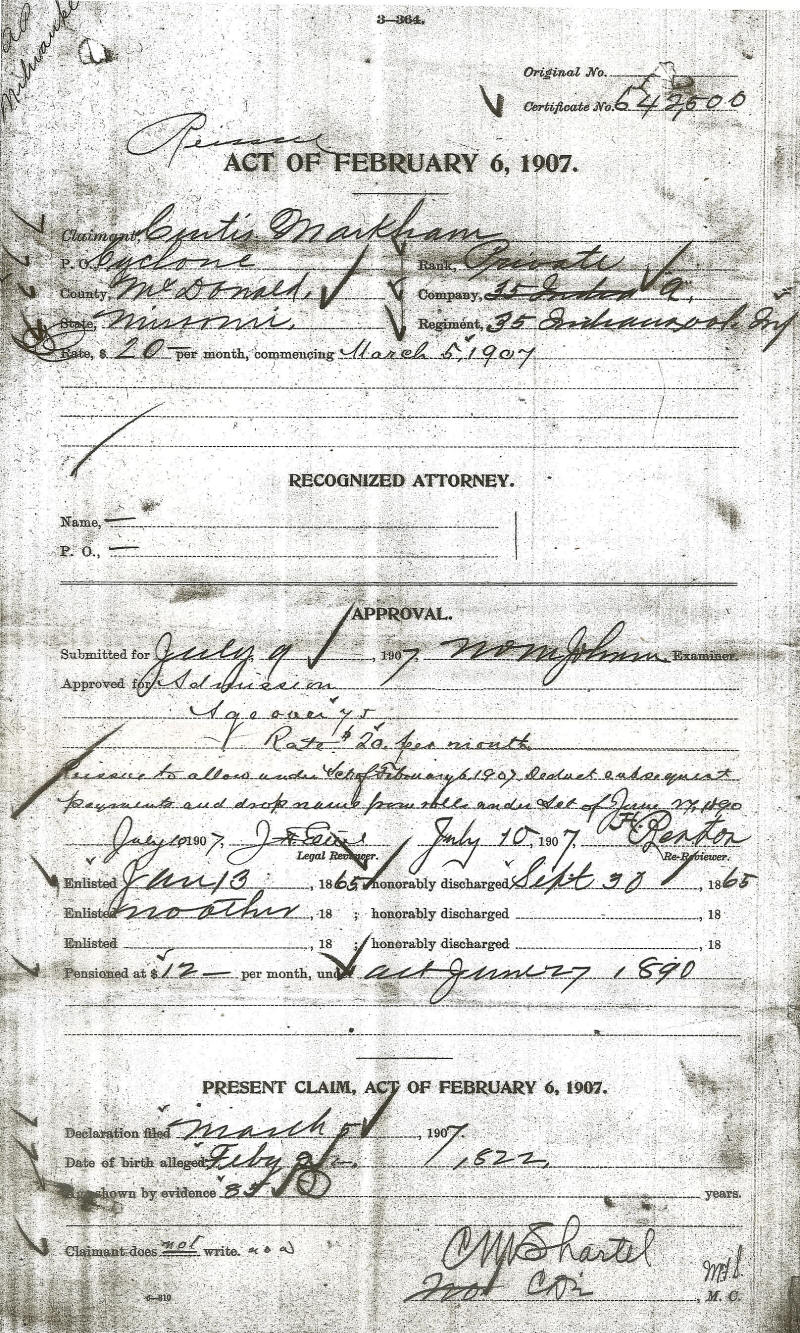 Milwaukee
3—364.
Original No.
Certificate No. 642,500
Reissue
ACT OF FEBRUARY 6, 1907.
Claimant, Curtis Markham
P. O., Cyclone
Rank, Private
County, McDonald,
Company,
State, Missouri.
Regiment, 35
Rate, $ 20 — per month, commencing March 5, 1907
RECOGNIZED ATTORNEY.
Name, —
P. O., —
APPROVAL.
Submitted for July 9, 1907, Examiner.
Approved for Admission
Age over 75
Rate $20. per month.
Reissue to allow under Act of February 6, 1907. Deduct subsequent
payments and drop name from rolls under Act of June 27, 1890
July 10 1907, Legal Reviewer. July 10, 1907, Re-Reviewer.
Enlisted Jan 13, 1865; honorably discharged Sept 30, 1865
Enlisted no other, 18 ; honorably discharged , 18
Enlisted , 18 ; honorably discharged , 18
Pensioned at $12 — per month, under act June 27 1890
PRESENT CLAIM, ACT OF FEBRUARY 6, 1907.
Declaration filed March 5, 1907.
Date of birth alleged, Feby 2, 1822,
shown by evidence 85 years.
Claimant does not write.
C M Shartel
, M. C.